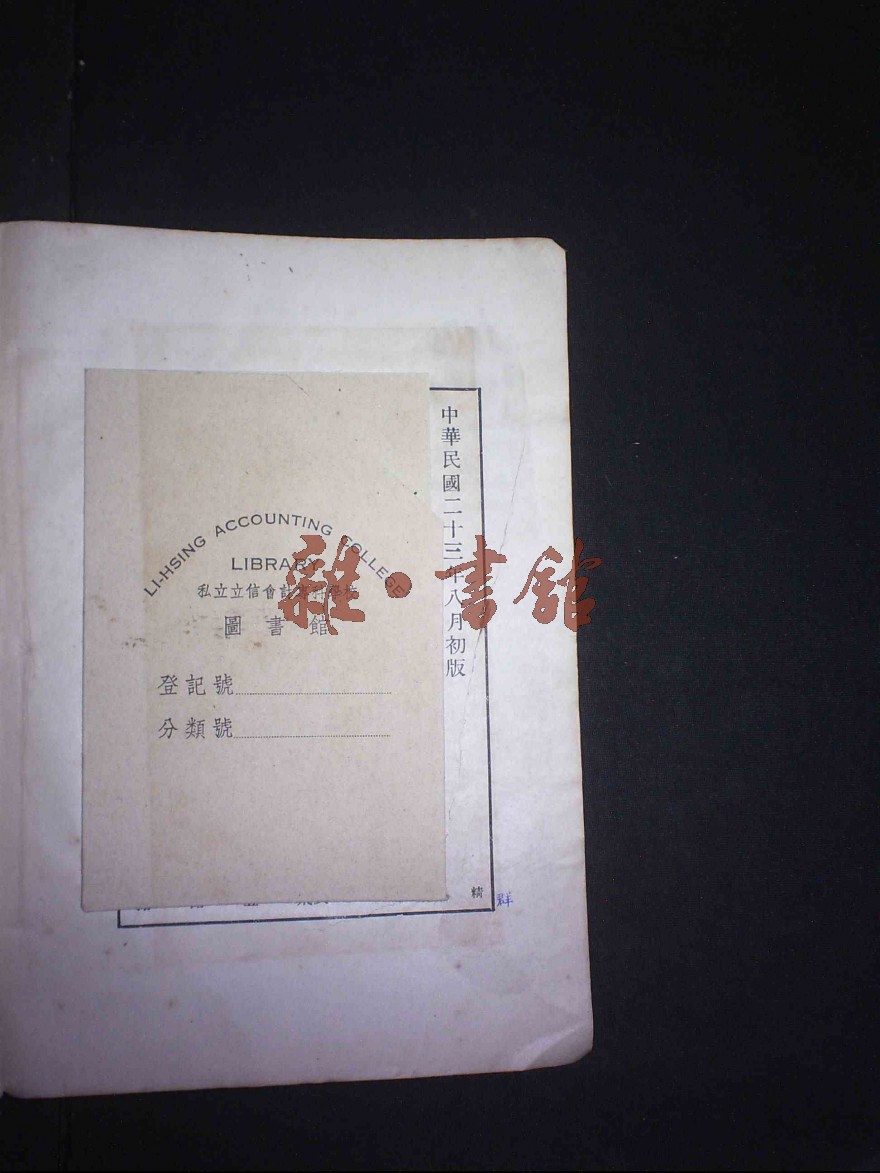 中華民國二十三年八月初版
LI-HSING ACCOUNTING COLLEGE
LIBRARY
私立立信會計專科學校
圖書館
登記號
分類號
雜·書館
精
群